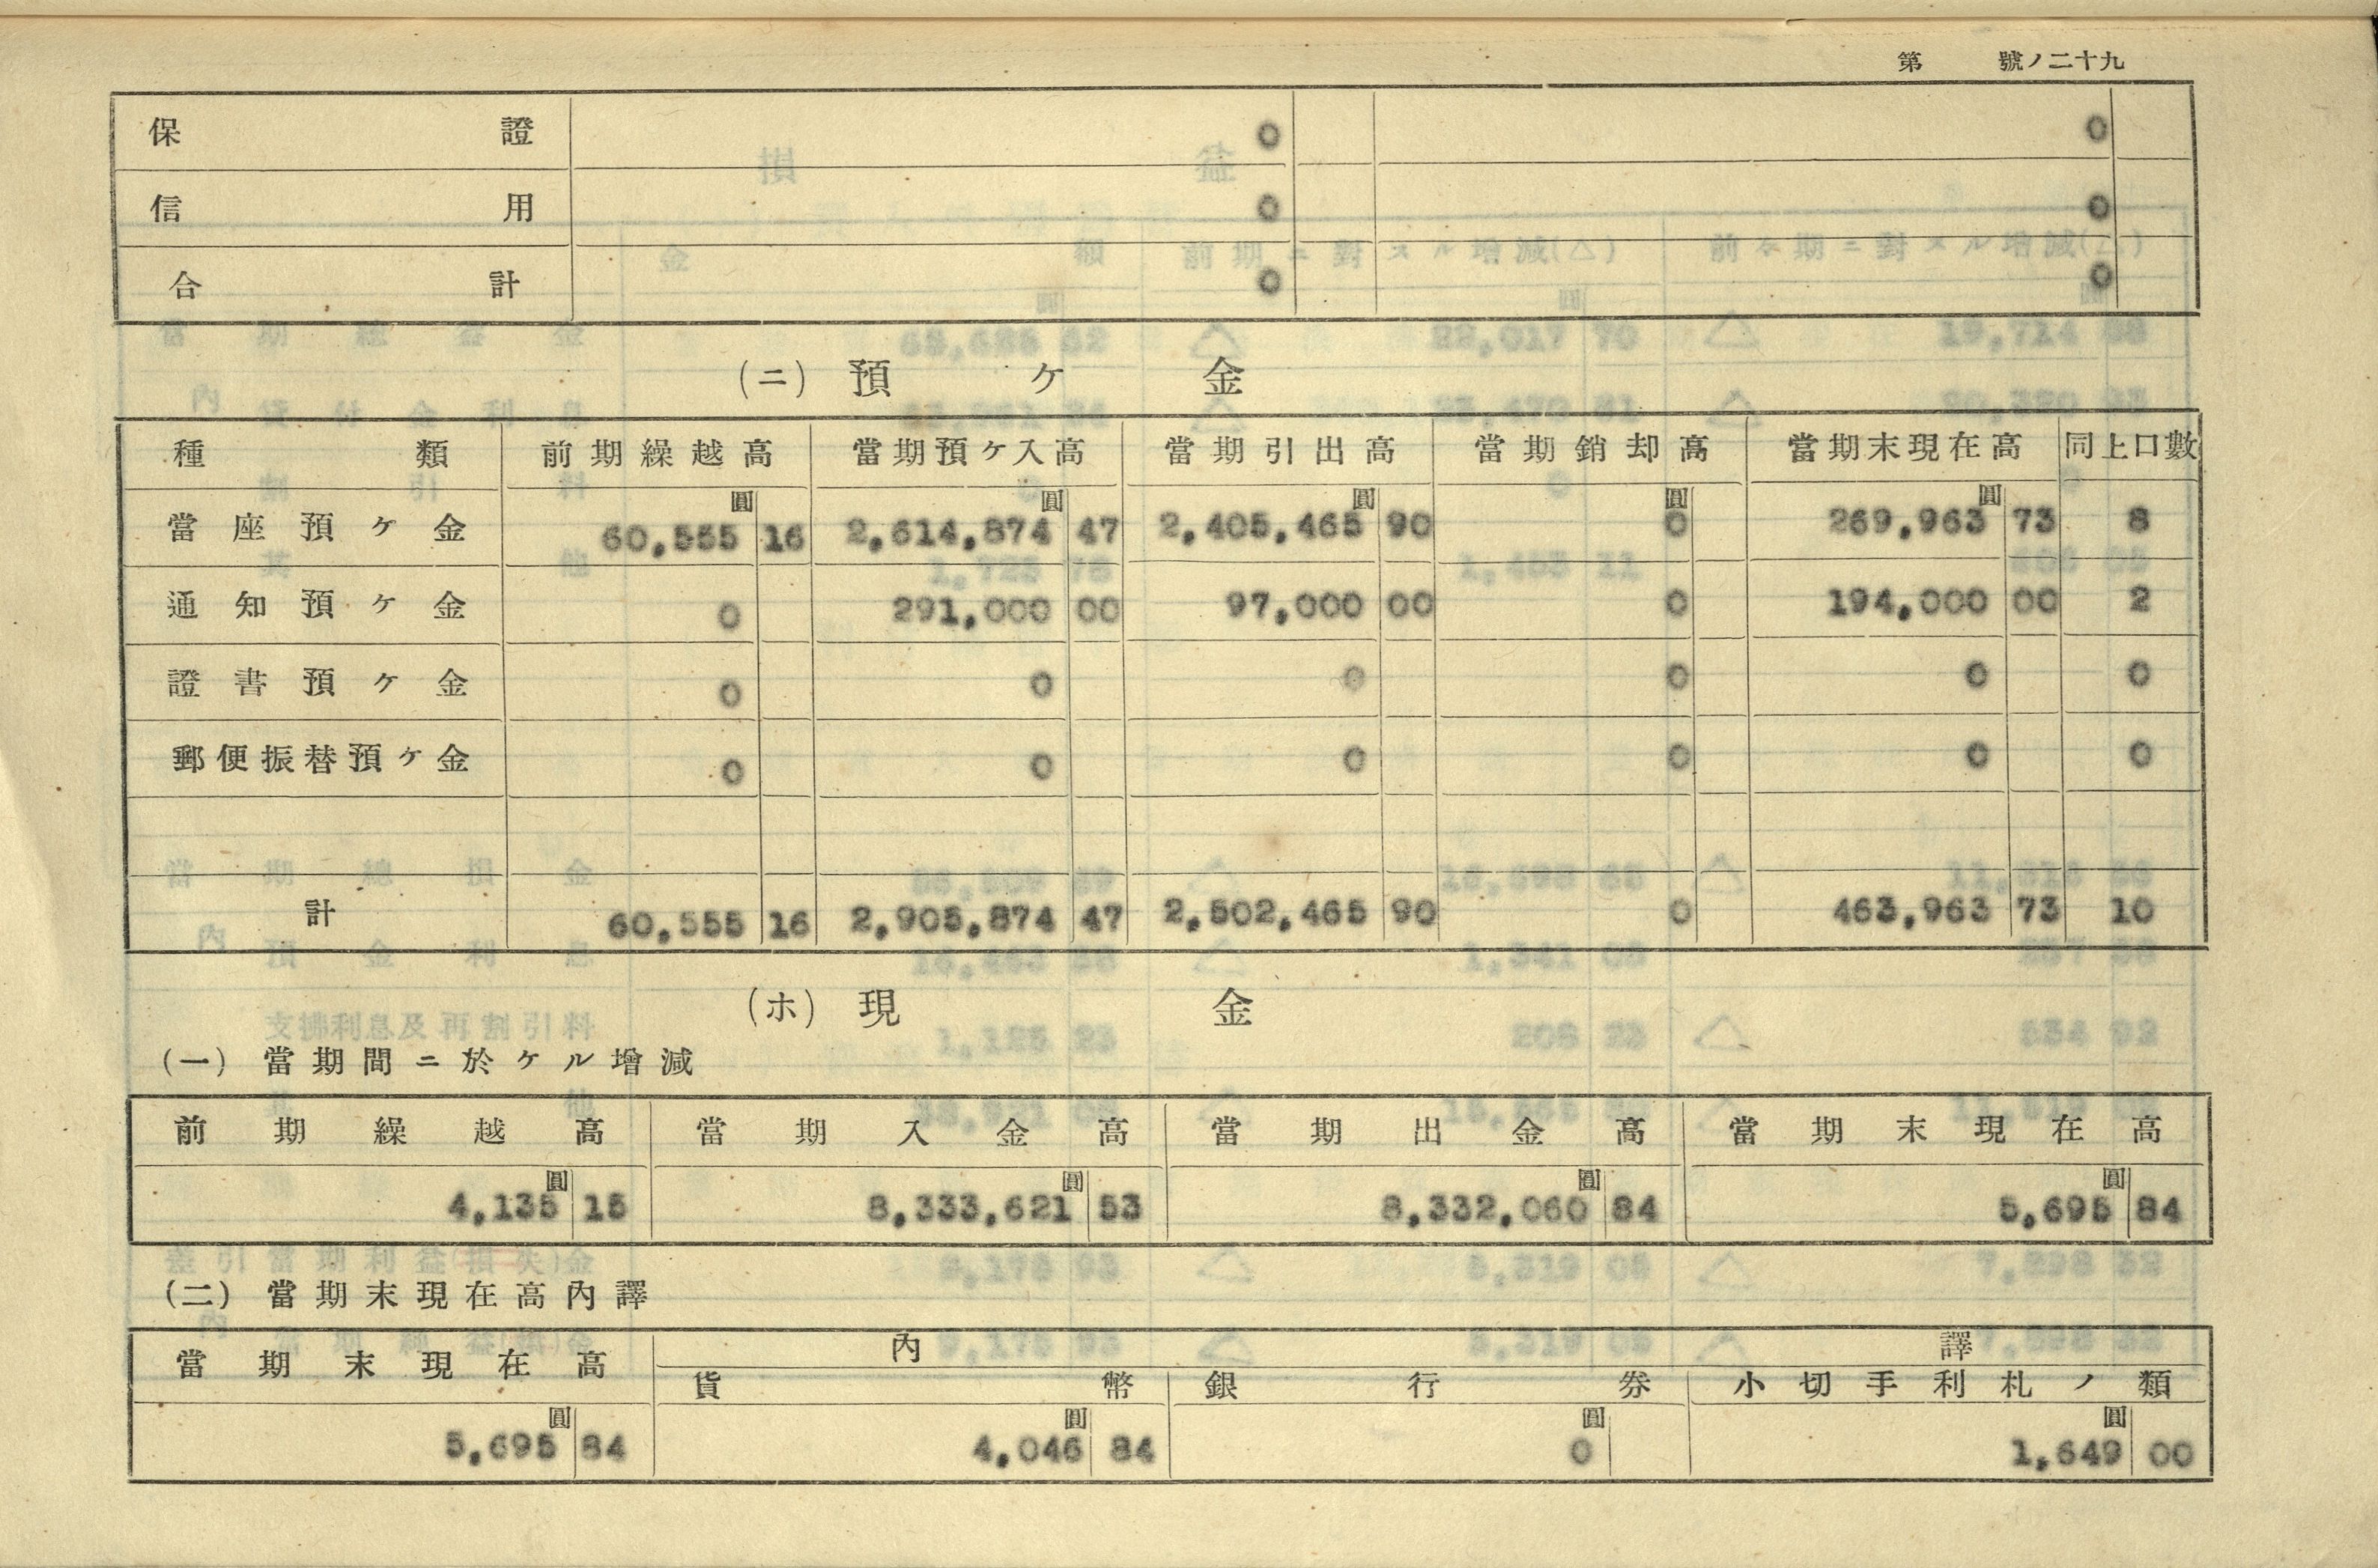 第 號ノ二十九
保證 0 0
信用 0 0
合計 0 0
(ニ) 預ケ金
種類 前期繰越高 當期預ケ入高 當期引出高 當期銷却高 當期末現在高 同上口數
圓 圓 圓 圓 圓
當座預ケ金 60,555 16 2,614,874 47 2,405,465 90 0 269,963 73 8
通知預ケ金 0 291,000 00 97,000 00 0 194,000 00 2
證書預ケ金 0 0 0 0 0 0
郵便振替預ケ金 0 0 0 0 0 0
計 60,555 16 2,905,874 47 2,502,465 90 0 463,963 73 10
(ホ) 現金
(一) 當期間ニ於ケル增減
前期繰越高 當期入金高 當期出金高 當期末現在高
圓 圓 圓 圓
4,135 15 8,333,621 53 8,332,060 84 5,695 84
(二) 當期末現在高內譯
當期末現在高 內譯
貨幣 銀行券 小切手利札ノ類
圓 圓 圓 圓
5,695 84 4,046 84 0 1,649 00